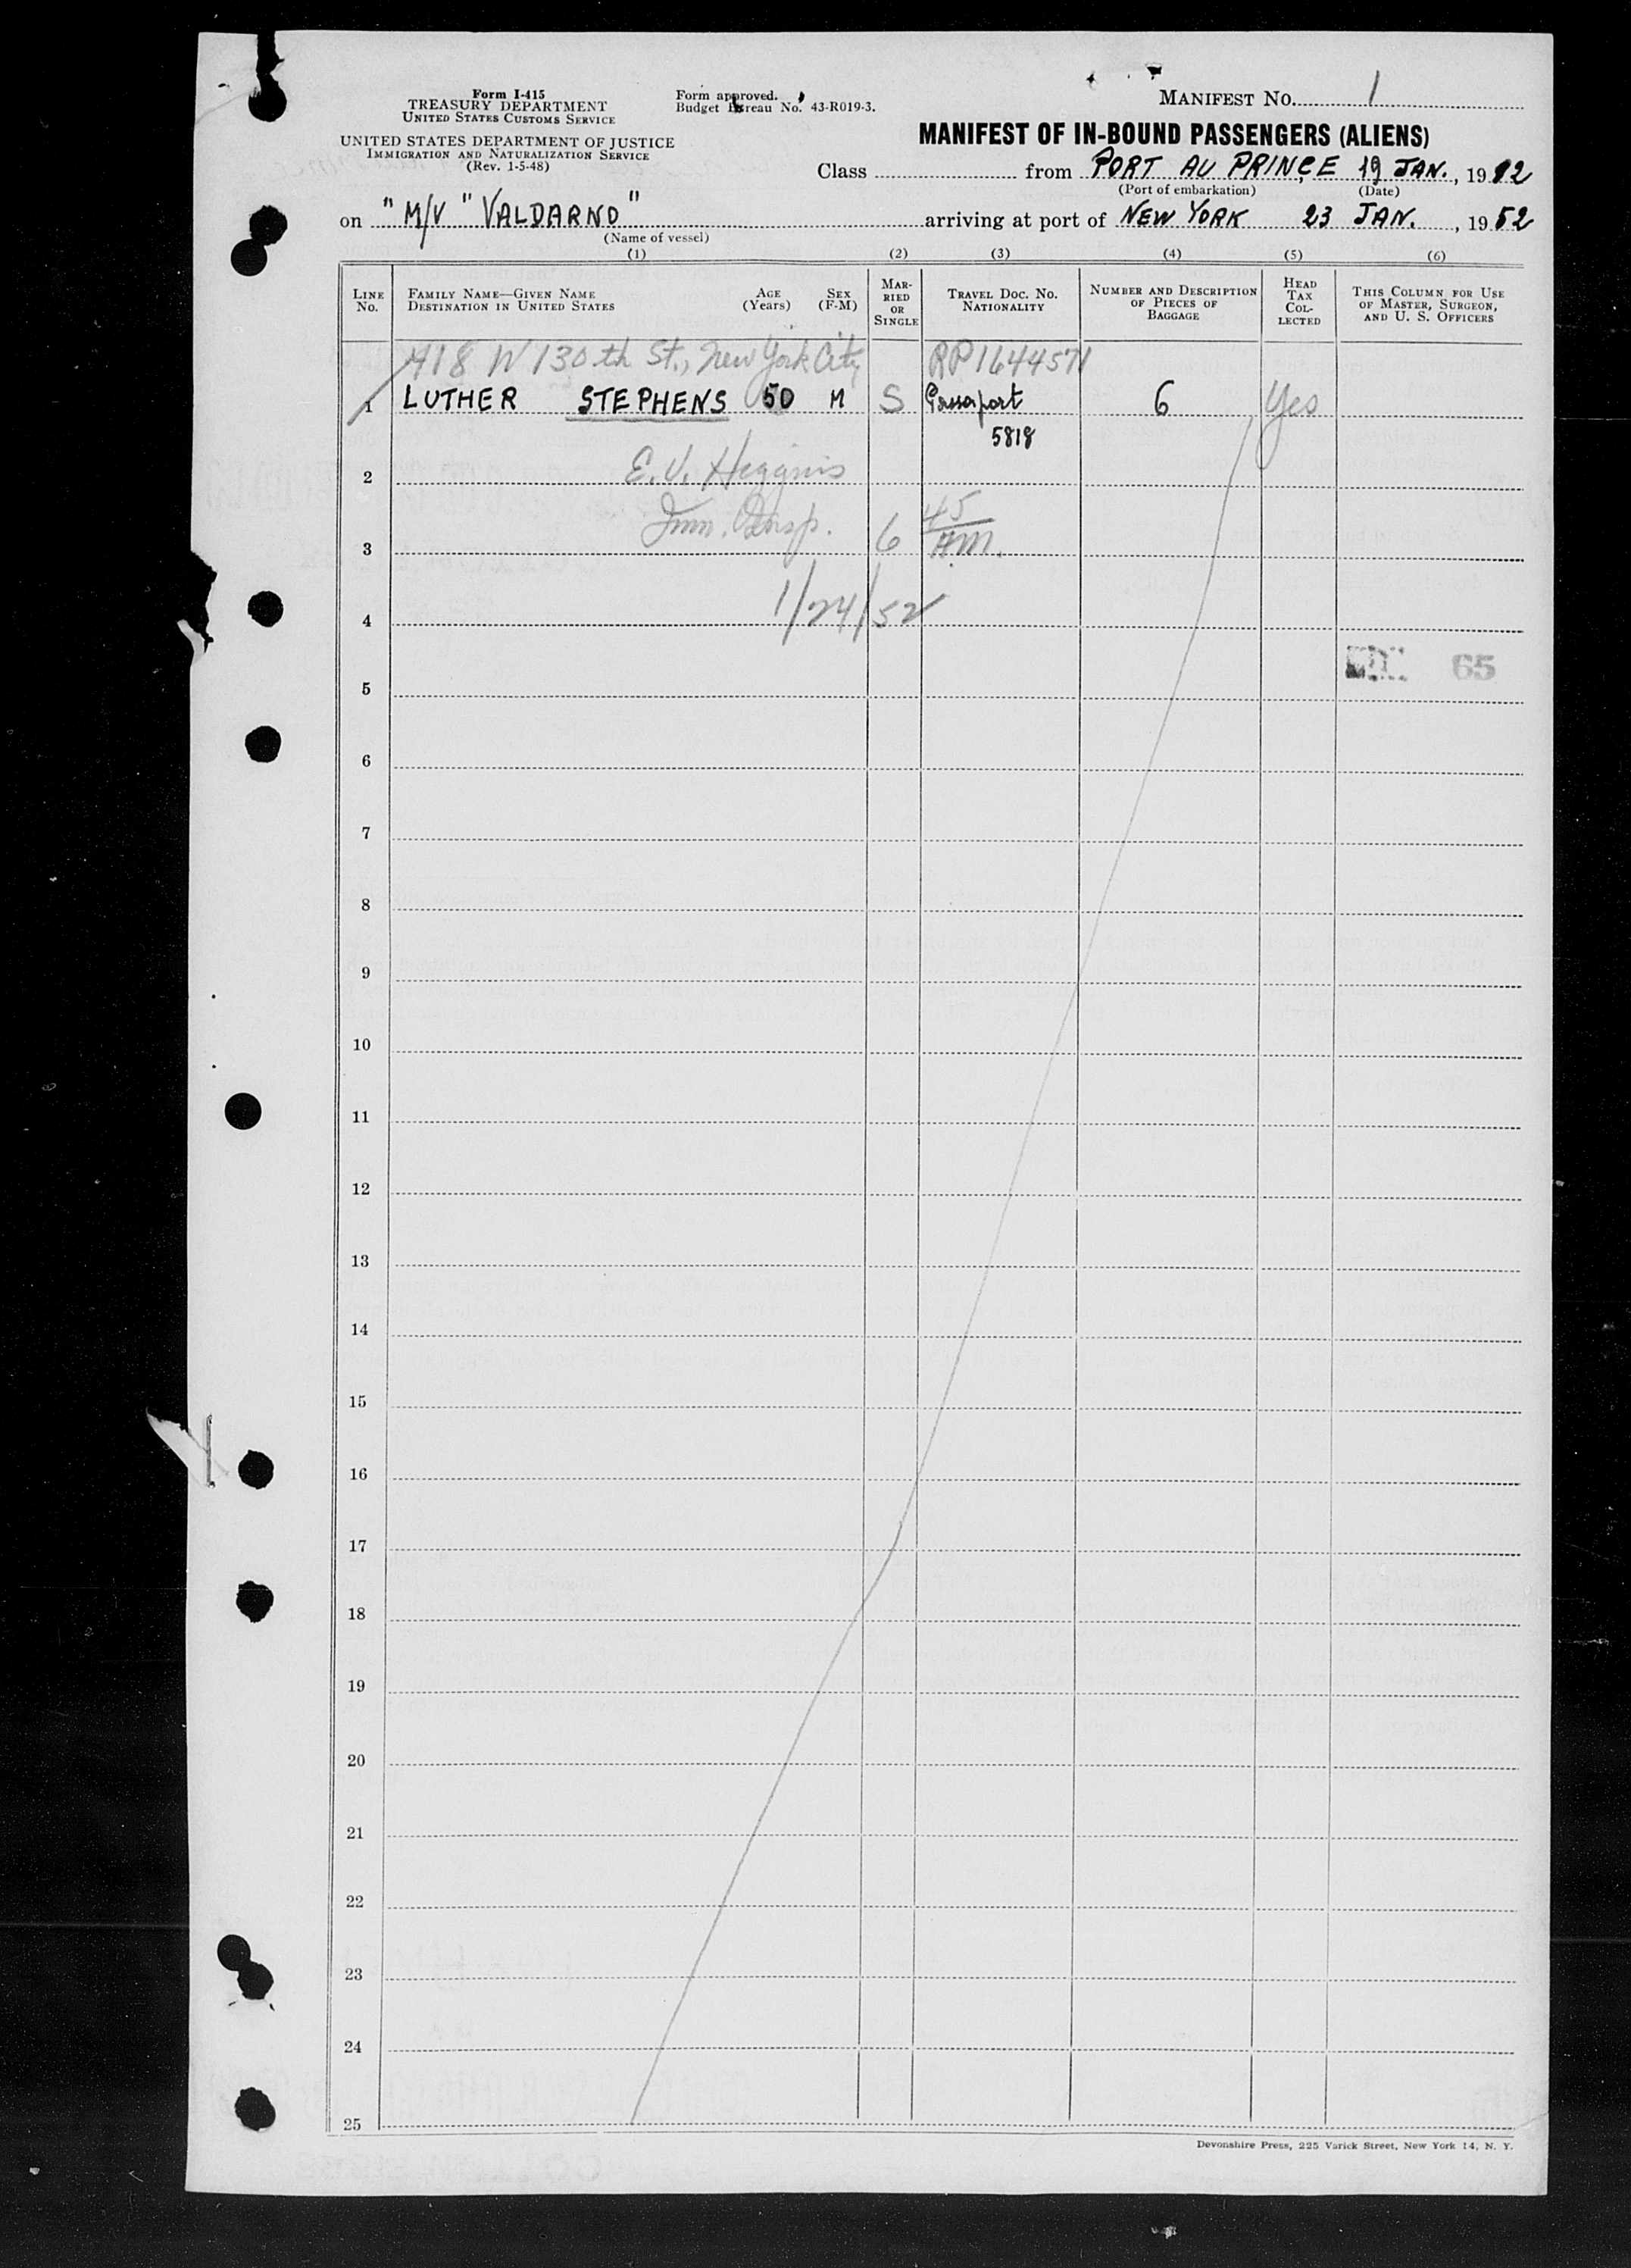 Form I-415
TREASURY DEPARTMENT
UNITED STATES CUSTOMS SERVICE
UNITED STATES DEPARTMENT OF JUSTICE
IMMIGRATION AND NATURALIZATION SERVICE
(Rev. 1-5-48)
Form approved.
Budget Bureau No. 43-R019-3.
MANIFEST NO. 1
MANIFEST OF IN-BOUND PASSENGERS (ALIENS)
Class from PORT AU PRINCE 19 JAN., 1952
(Port of embarkation) (Date)
on "M/V "VALDARNO" arriving at port of NEW YORK 23 JAN., 1952
(Name of vessel)
(1) (2) (3) (4) (5) (6)
LINE No. FAMILY NAME—GIVEN NAME DESTINATION IN UNITED STATES AGE (Years) SEX (F-M) MARRIED OR SINGLE TRAVEL DOC. NO. NATIONALITY NUMBER AND DESCRIPTION OF PIECES OF BAGGAGE HEAD TAX COLLECTED THIS COLUMN FOR USE OF MASTER, SURGEON, AND U. S. OFFICERS
418 W 130th St., New York City RP1644571
1 LUTHER STEPHENS 50 M S Passaport 6 Yes
5818
2 E. V. Higgins
3 Imm. Insp. 6 45 AM.
4 1/24/52
65
5
6
7
8
9
10
11
12
13
14
15
16
17
18
19
20
21
22
23
24
25
Devonshire Press, 225 Varick Street, New York 14, N. Y.